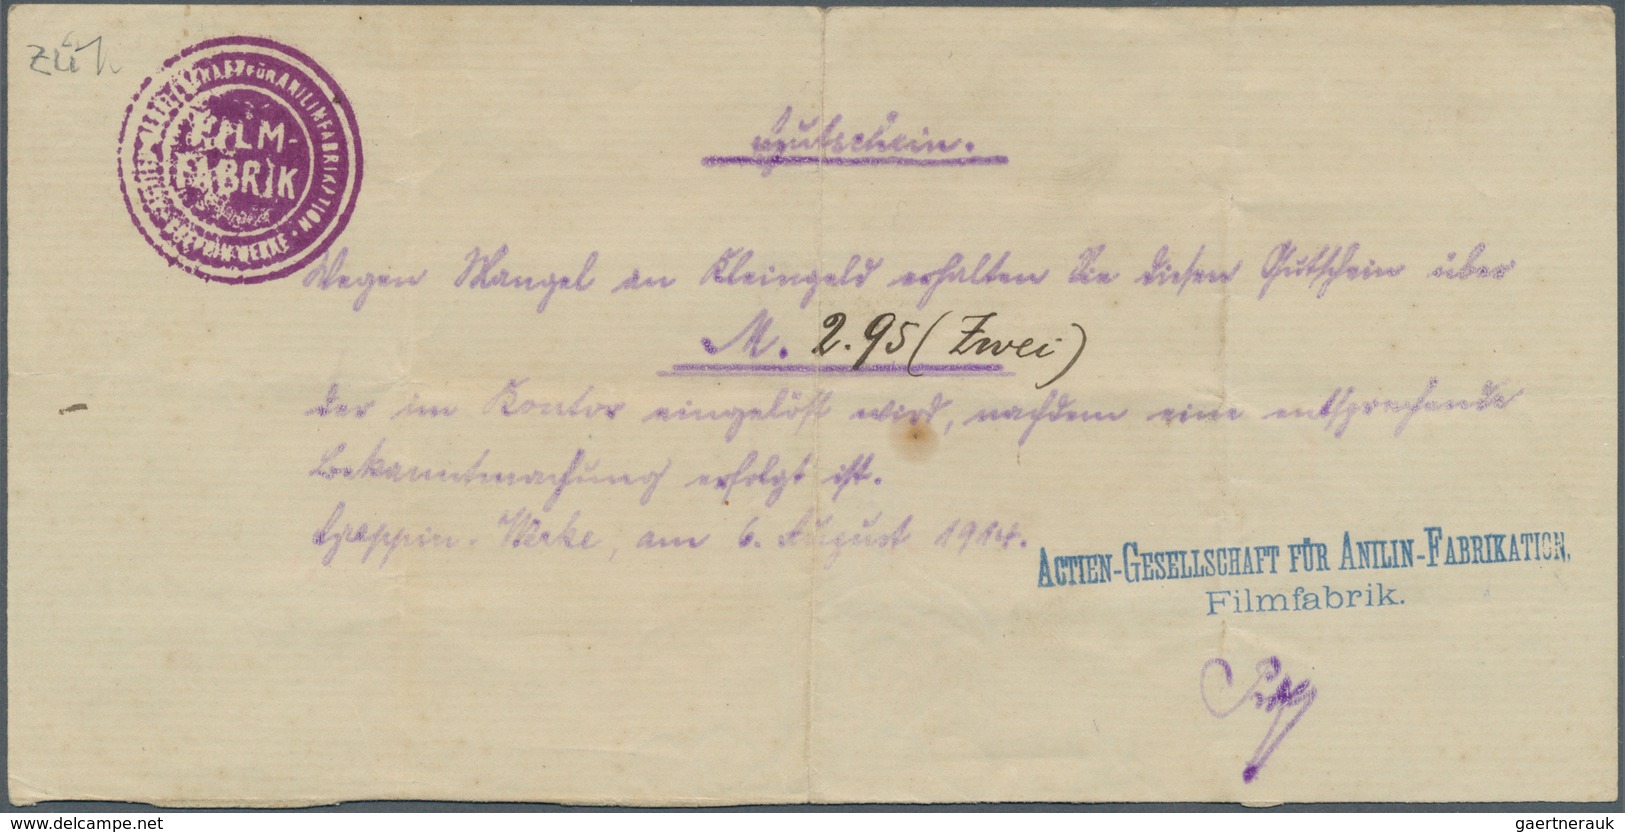 ACTIEN-GESELLSCHAFT FÜR ANILINFABRIKATION · GREPPIN-WERKE ·
FILM-
FABRIK
Gutschein.
Wegen Mangel an Kleingeld erhalten Sie diesen Gutschein über
M. 2.95 (Zwei)
der im Kontor eingelöst wird, nachdem eine entsprechende
Bekanntmachung erfolgt ist.
Greppin-Werke, am 6. August 1914.
ACTIEN-GESELLSCHAFT FÜR ANILIN-FABRIKATION,
Filmfabrik.
www.delcampe.net
gaertnerauk